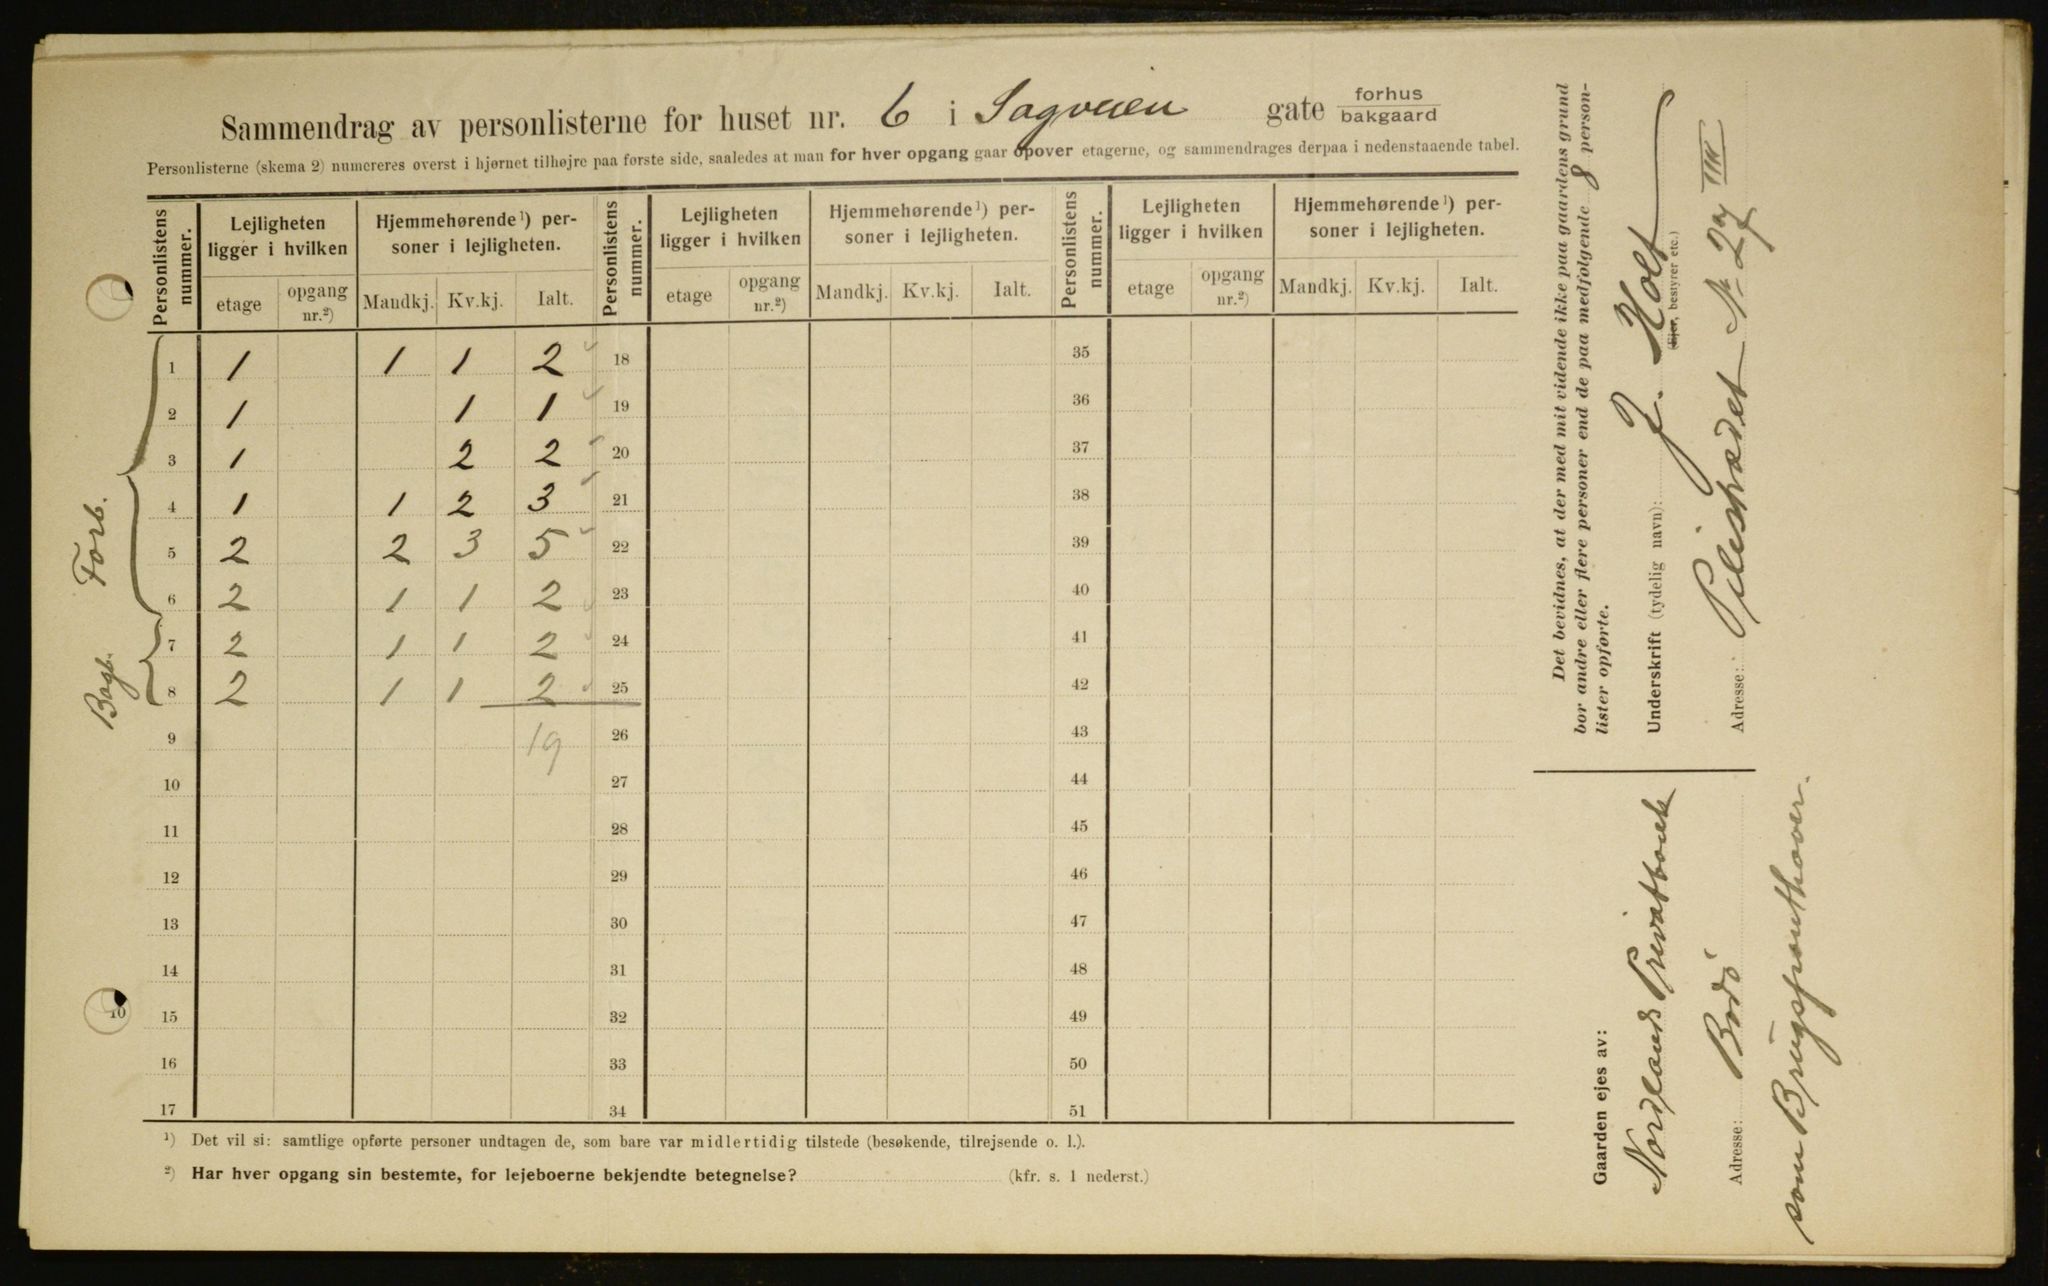 Sammendrag av personlisterne for huset nr. 6 i Sagveien gate forhus
bakgaard
Personlisterne (skema 2) numereres øverst i hjørnet tilhøjre paa første side, saaledes at man for hver opgang gaar opover etagerne, og sammendrages derpaa i nedenstaaende tabel.
Personlistens nummer. Lejligheten ligger i hvilken Hjemmehørende¹) personer i lejligheten. Personlistens nummer. Lejligheten ligger i hvilken Hjemmehørende¹) personer i lejligheten. Personlistens nummer. Lejligheten ligger i hvilken Hjemmehørende¹) personer i lejligheten.
etage opgang nr.²) Mandkj. Kv.kj. Ialt. etage opgang nr.²) Mandkj. Kv.kj. Ialt. etage opgang nr.²) Mandkj. Kv.kj. Ialt.
1 1 1 1 2 18 35
2 1 1 1 19 36
3 1 2 2 20 37
4 1 1 2 3 21 38
5 2 2 3 5 22 39
6 2 1 1 2 23 40
7 2 1 1 2 24 41
8 2 1 1 2 25 42
9 19 26 43
10 27 44
11 28 45
12 29 46
13 30 47
14 31 48
15 32 49
16 33 50
17 34 51
Forb.
Bagb.
¹) Det vil si: samtlige opførte personer undtagen de, som bare var midlertidig tilstede (besøkende, tilrejsende o. l.).
²) Har hver opgang sin bestemte, for lejeboerne bekjendte betegnelse? (kfr. s. 1 nederst.)
Det bevidnes, at der med mit vidende ikke paa gaardens grund
bor andre eller flere personer end de paa medfølgende 8 person-
lister opførte.
Underskrift (tydelig navn): J. Holt
(Ejer, bestyrer etc.)
Adresse: Pilestrædet Nr 27 III
Gaarden ejes av:
Nordlands Privatbank
Adresse: Bodö
som Brugspanthaver.